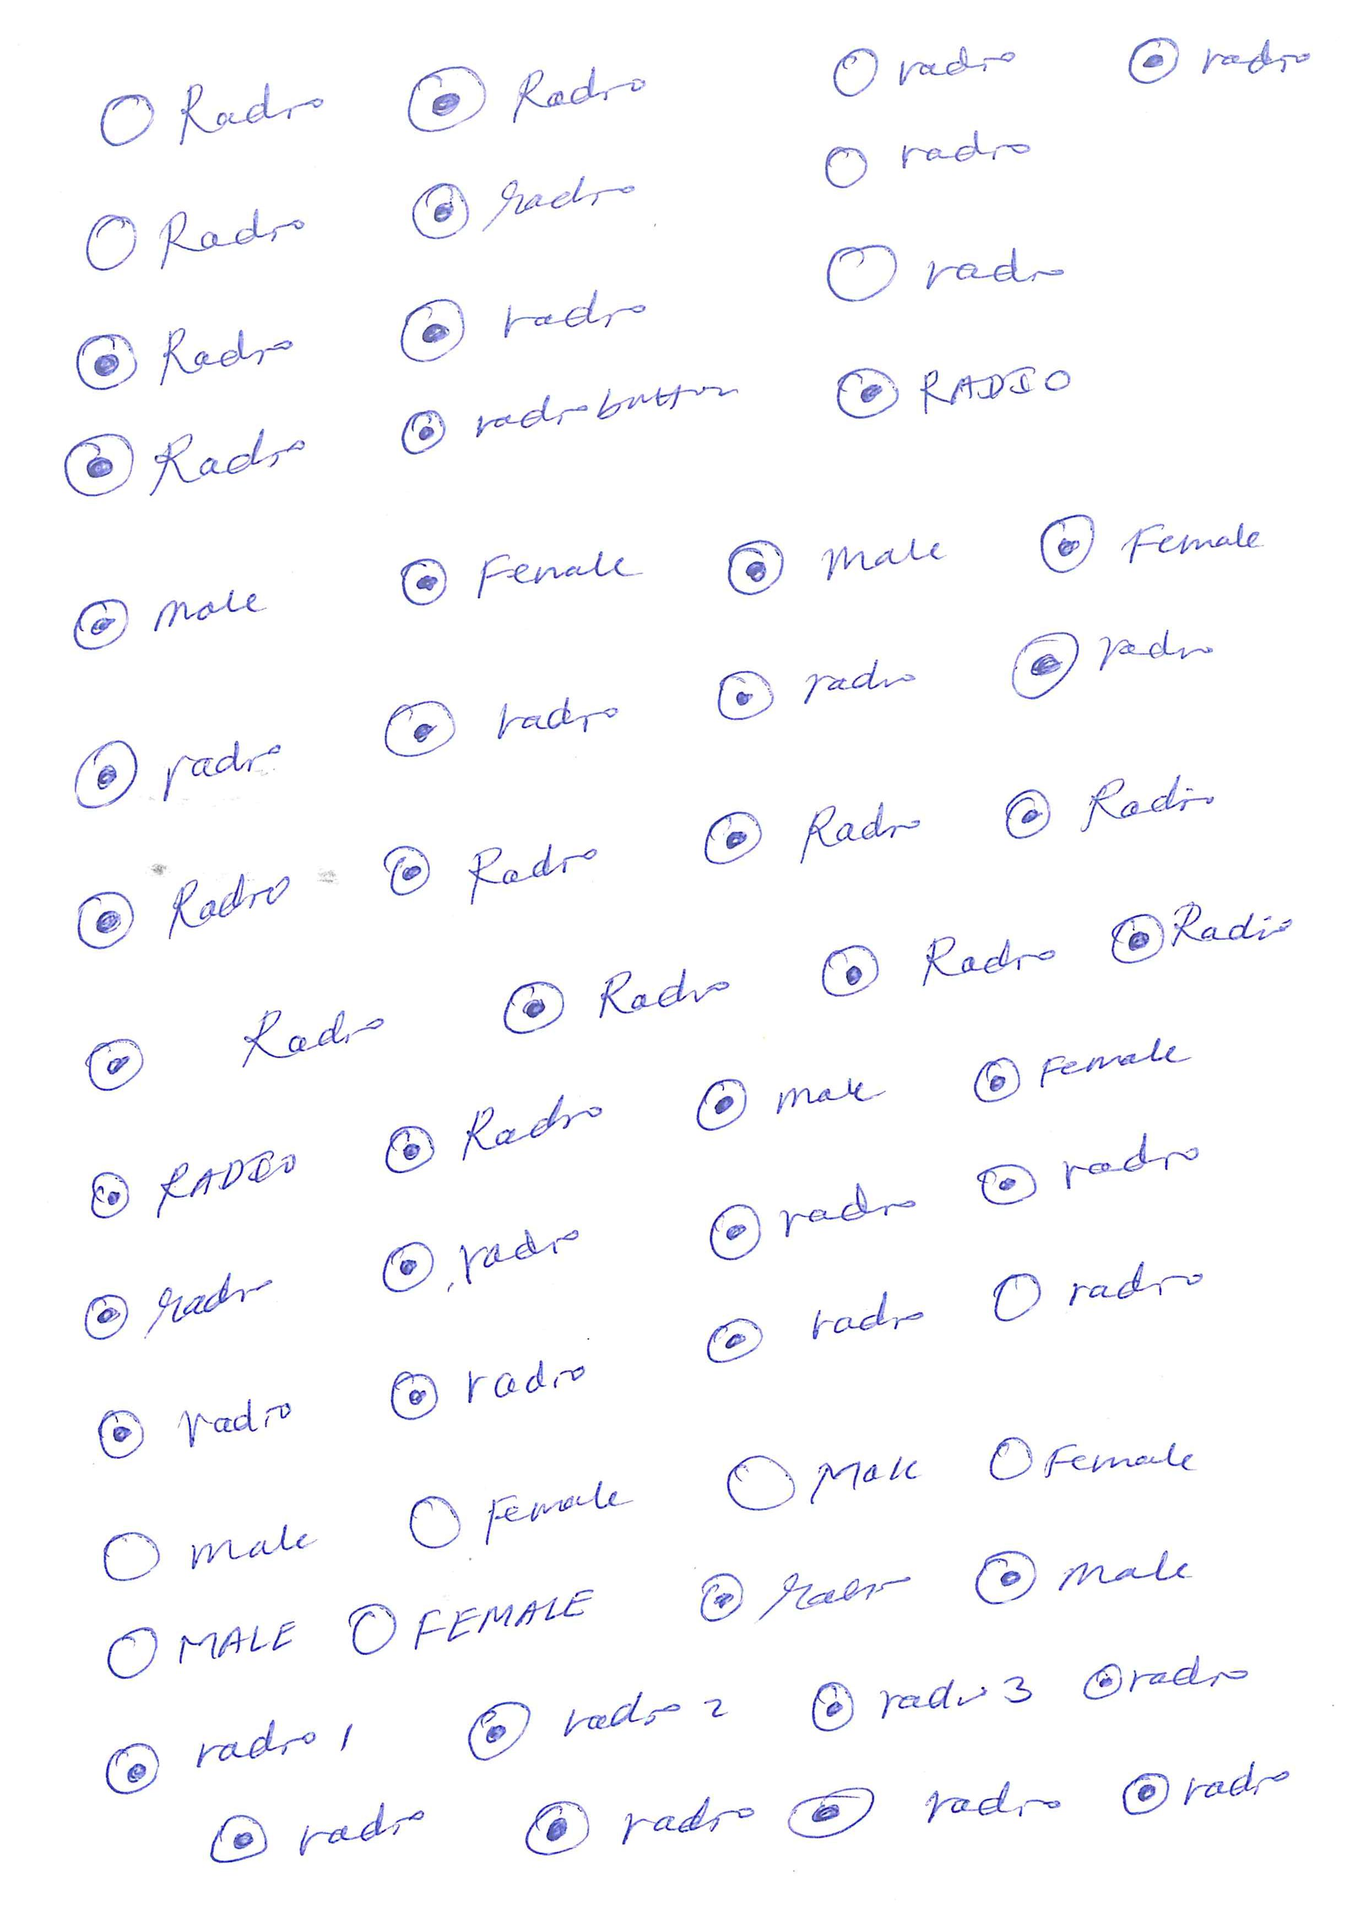 Radio Radio radio radio
Radio radio radio
Radio radio radio
Radio radio button RADIO
Male Female Male Female
radio radio radio radio
Radio Radio Radio Radio
Radio Radio Radio Radio
RADIO Radio male Female
radio radio radio radio
radio radio radio radio
male Female Male Female
MALE FEMALE radio Male
radio 1 radio 2 radio 3 radio
radio radio radio radio